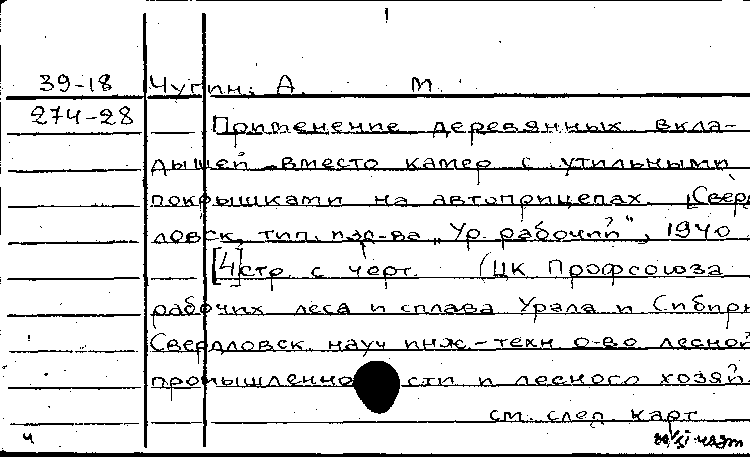 39-18 Чугин, А. М.
274-28
Применение деревянных вкла-
дышей вместо камер с утильными
покрышками на автоприцепах. [Сверд
ловск, тип. изд-ва „Ур. рабочий", 1940
[4] стр. с черт. (ЦК Профсоюза
рабочих леса и сплава Урала и Сибири
Свердловск. науч инж-техн о-во лесной
промышленности и лесного хозяй
см. след карт
ч